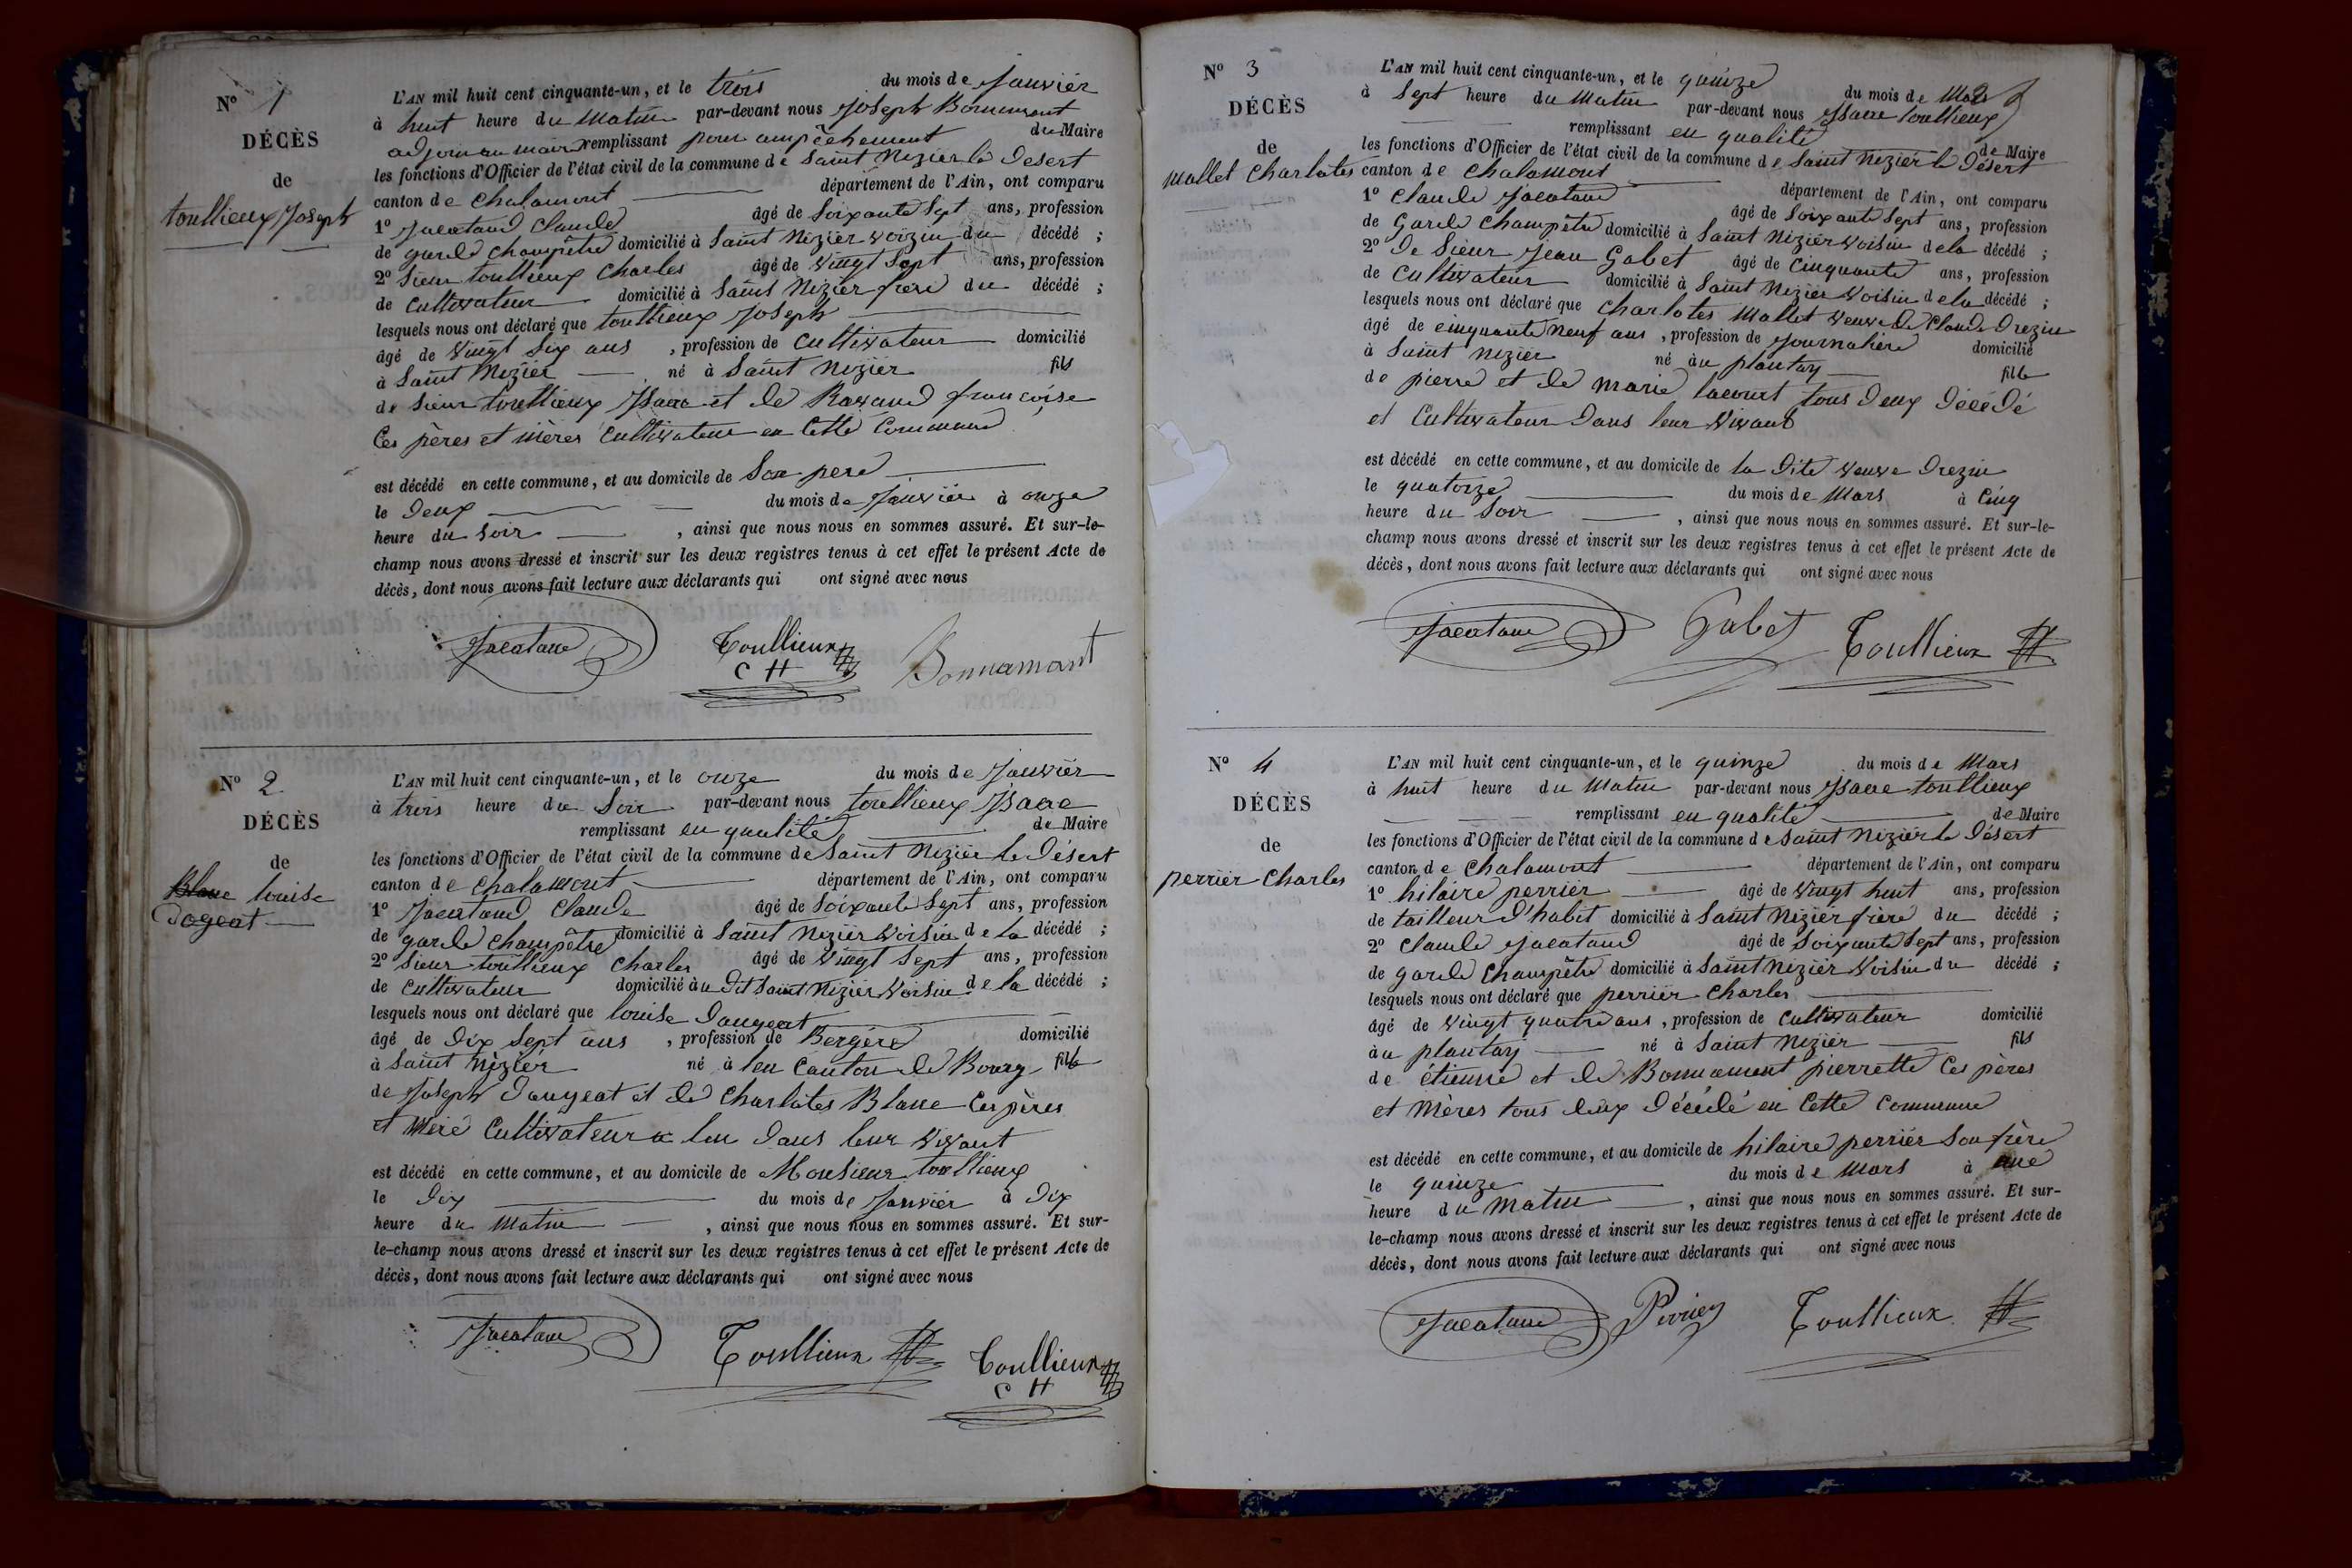 N° 1
DÉCÈS
de
toullieux Joseph
L'AN mil huit cent cinquante-un, et le trois du mois de Janvier
à huit heure du Matin par-devant nous Joseph Bonnamant
adjoin au maire remplissant pour ampêchement du Maire
les fonctions d'Officier de l'état civil de la commune de Saint Nizier le Desert
canton de Chalamont département de l'Ain, ont comparu
1° Jacataud Claude âgé de Soixante Sept ans, profession
de garde Champêtre domicilié à Saint Nizier woizin du décédé ;
2° Sieur toullieux Charles âgé de Vingt Sept ans, profession
de Cultivateur domicilié à Saint Nizier frere du décédé ;
lesquels nous ont déclaré que toullieux Joseph
âgé de Vingt Six ans , profession de Cultivateur domicilié
à Saint Nizier né à Saint Nizier fils
de Sieur toullieux Isaac et de Ravaud françoise
Ces pères et mères Cultivateur en Cette Commune
est décédé en cette commune, et au domicile de Son pere
le Deux du mois de Janvier à onze
heure du Soir , ainsi que nous nous en sommes assuré. Et sur-le-
champ nous avons dressé et inscrit sur les deux registres tenus à cet effet le présent Acte de
décès, dont nous avons fait lecture aux déclarants qui ont signé avec nous
Jacataud Toullieux CH Bonnamant
N° 2
DÉCÈS
de
louise
Dogeat
L'AN mil huit cent cinquante-un, et le onze du mois de Janvier
à trois heure du Soir par-devant nous toullieux Isaac
remplissant en qualité de Maire
les fonctions d'Officier de l'état civil de la commune de Saint Nizier le Désert
canton de Chalamont département de l'Ain, ont comparu
1° Jacataud Claude âgé de Soixante Sept ans, profession
de garde Champêtre domicilié à Saint Nizier Voisin de la décédé ;
2° Sieur toullieux Charles âgé de Vingt Sept ans, profession
de Cultivateur domicilié au Dit Saint Nizier Voisin de la décédé ;
lesquels nous ont déclaré que louise Daugeat
âgé de Dix Sept ans , profession de Bergère domicilié
à Saint Nizier né à len Canton de Bourg fille
de Joseph Daugeat et de Charlotes Blanc Ces pères
et Mère Cultivateur a len Dans leur Vivant
est décédé en cette commune, et au domicile de Monsieur toullieux
le Dix du mois de Janvier à Dix
heure du Matin , ainsi que nous nous en sommes assuré. Et sur-
le-champ nous avons dressé et inscrit sur les deux registres tenus à cet effet le présent Acte de
décès, dont nous avons fait lecture aux déclarants qui ont signé avec nous
Jacataud Toullieux Toullieux CH
N° 3
DÉCÈS
de
Mallet Charlotes
L'AN mil huit cent cinquante-un, et le quinze du mois de Mars
à Sept heure du Matin par-devant nous Isaac toullieux
remplissant en qualité de Maire
les fonctions d'Officier de l'état civil de la commune de Saint Nizier le Désert
canton de Chalamont département de l'Ain, ont comparu
1° Claude Jacataud âgé de Soixante Sept ans, profession
de Garde Champêtre domicilié à Saint Nizier Voisin de la décédé ;
2° De Sieur Jean Gabet âgé de Cinquante ans, profession
de Cultivateur domicilié à Saint Nizier Voisin de la décédé ;
lesquels nous ont déclaré que Charlotes Mallet Veuve de Claude Drezin
âgé de cinquante neuf ans , profession de Journalière domicilié
à Saint Nizier né au plantay fille
de pierre et de marie lacourt tous Deux Décédé
et Cultivateur Dans leur Vivant
est décédé en cette commune, et au domicile de la Dite Veuve Drezin
le quatorze du mois de Mars à Cinq
heure du Soir , ainsi que nous nous en sommes assuré. Et sur-le-
champ nous avons dressé et inscrit sur les deux registres tenus à cet effet le présent Acte de
décès, dont nous avons fait lecture aux déclarants qui ont signé avec nous
Jacataud Gabet Toullieux
N° 4
DÉCÈS
de
perrier Charles
L'AN mil huit cent cinquante-un, et le quinze du mois de Mars
à huit heure du Matin par-devant nous Isaac toullieux
remplissant en qualité de Maire
les fonctions d'Officier de l'état civil de la commune de Saint Nizier le Désert
canton de Chalamont département de l'Ain, ont comparu
1° hilaire perrier âgé de Vingt huit ans, profession
de tailleur D'habit domicilié à Saint Nizier frère du décédé ;
2° Claude Jacataud âgé de Soixante Sept ans, profession
de garde Champêtre domicilié à Saint Nizier Voisin du décédé ;
lesquels nous ont déclaré que perrier Charles
âgé de Vingt quatre ans , profession de Cultivateur domicilié
au plantay né à Saint Nizier fils
de étienne et de Bonnamant pierrette Ces pères
et Mères tous deux Décédé en Cette Commune
est décédé en cette commune, et au domicile de hilaire perrier Son frère
le quinze du mois de Mars à une
heure du Matin , ainsi que nous nous en sommes assuré. Et sur-
le-champ nous avons dressé et inscrit sur les deux registres tenus à cet effet le présent Acte de
décès, dont nous avons fait lecture aux déclarants qui ont signé avec nous
Jacataud Perrier Toullieux